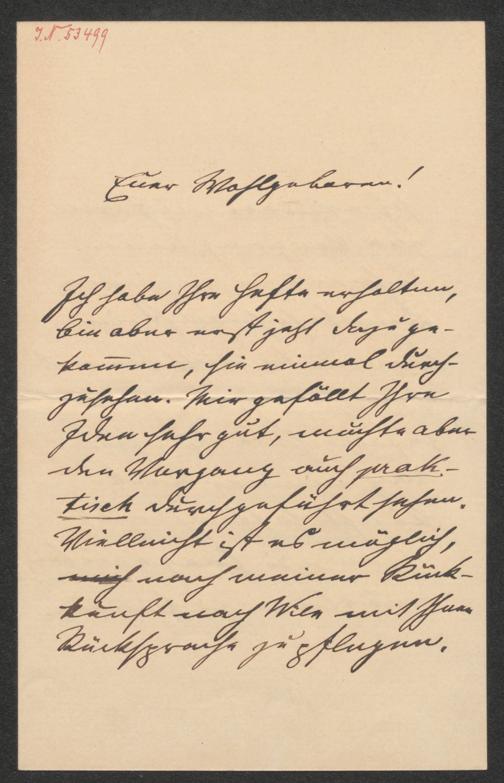 J.N. 53499
Euer Wohlgeboren!
Ich habe Ihre Hefte erhalten,
bin aber erst jetzt dazu ge-
kommen, sie einmal durch-
zusehen. Mir gefällt Ihre
Idee sehr gut, möchte aber
den Vorgang auch prak-
tisch durchgeführt sehen.
Vielleicht ist es möglich,
mich nach meiner Rück-
kunft nach Wien mit Ihnen
Rücksprache zu pflegen.